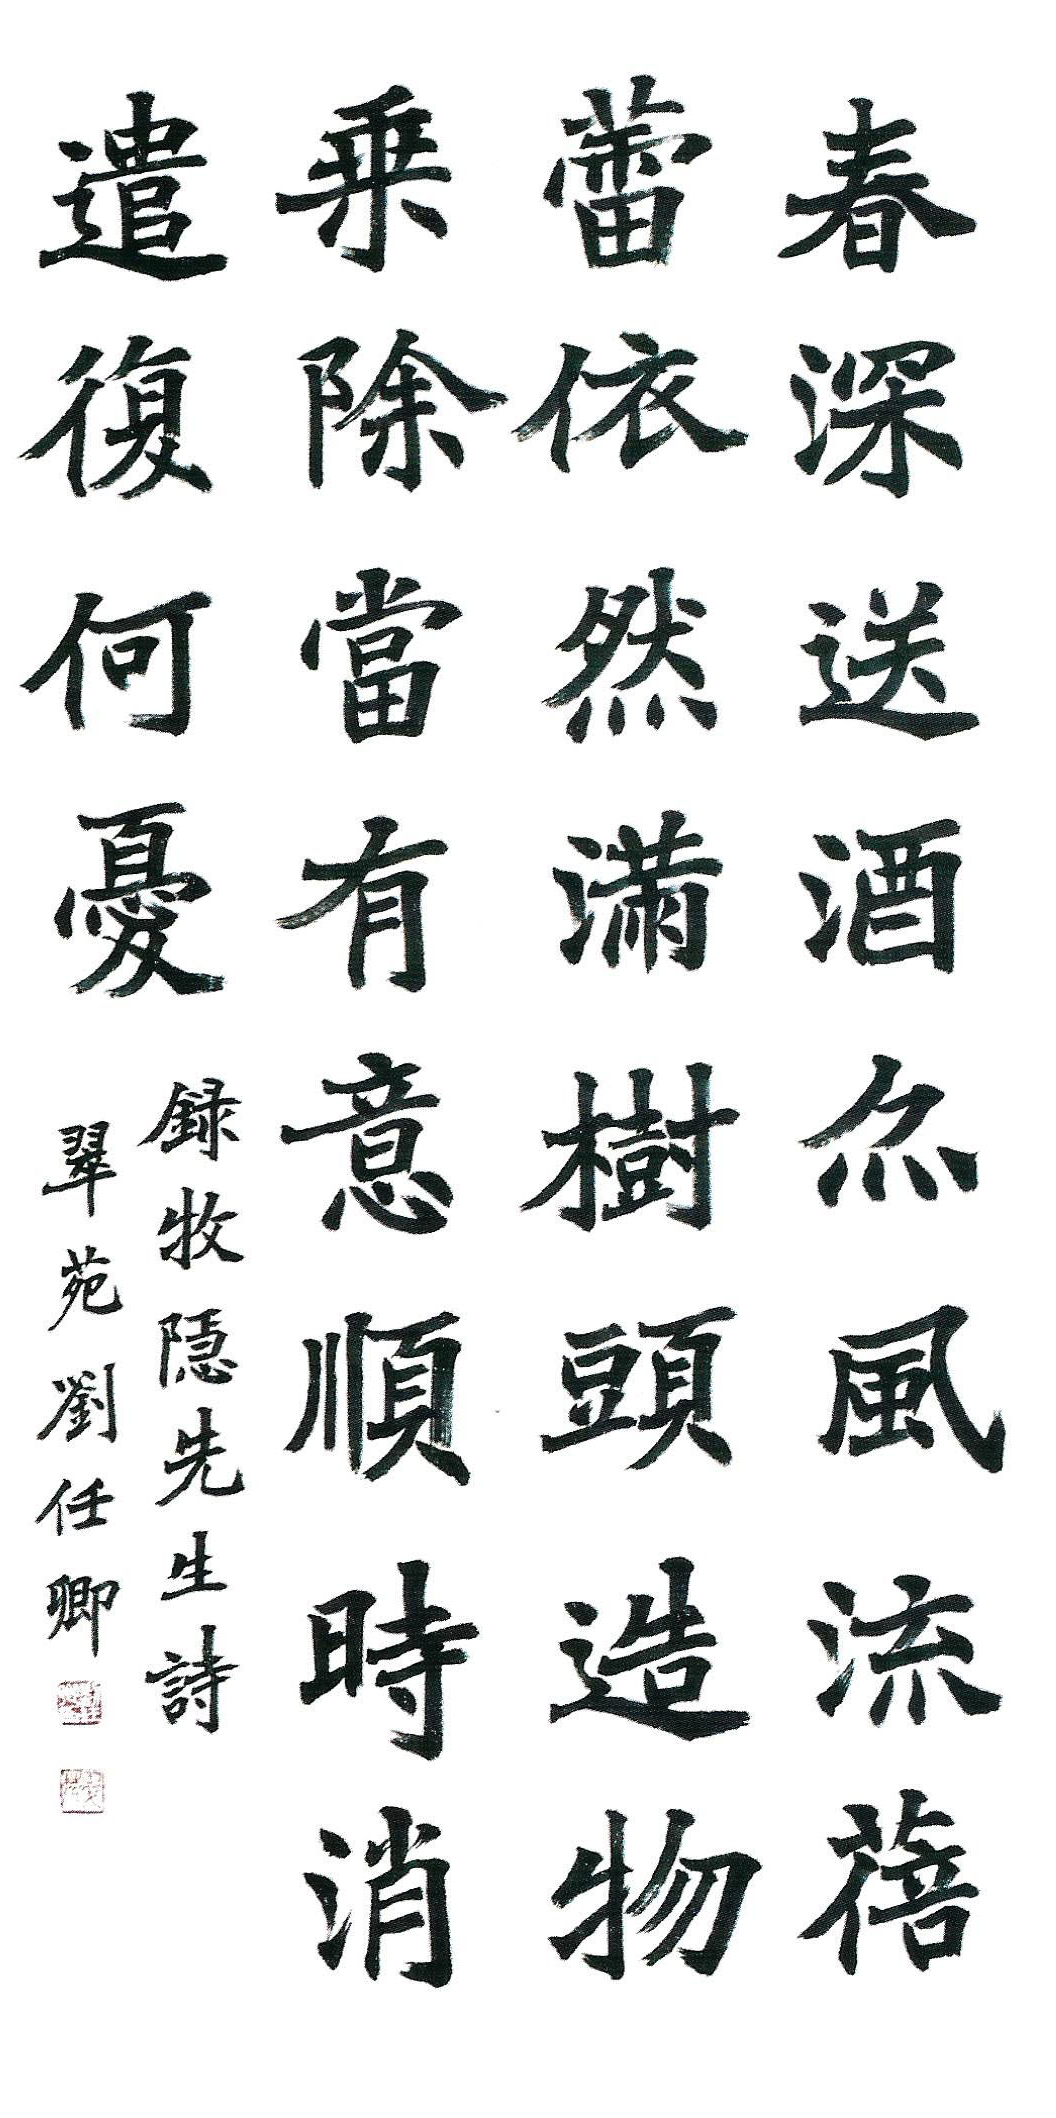 春深送酒尒風流蓓
蕾依然滿樹頭造物
乗除當有意順時消
遣復何憂
録牧隠先生詩
翠苑劉任卿